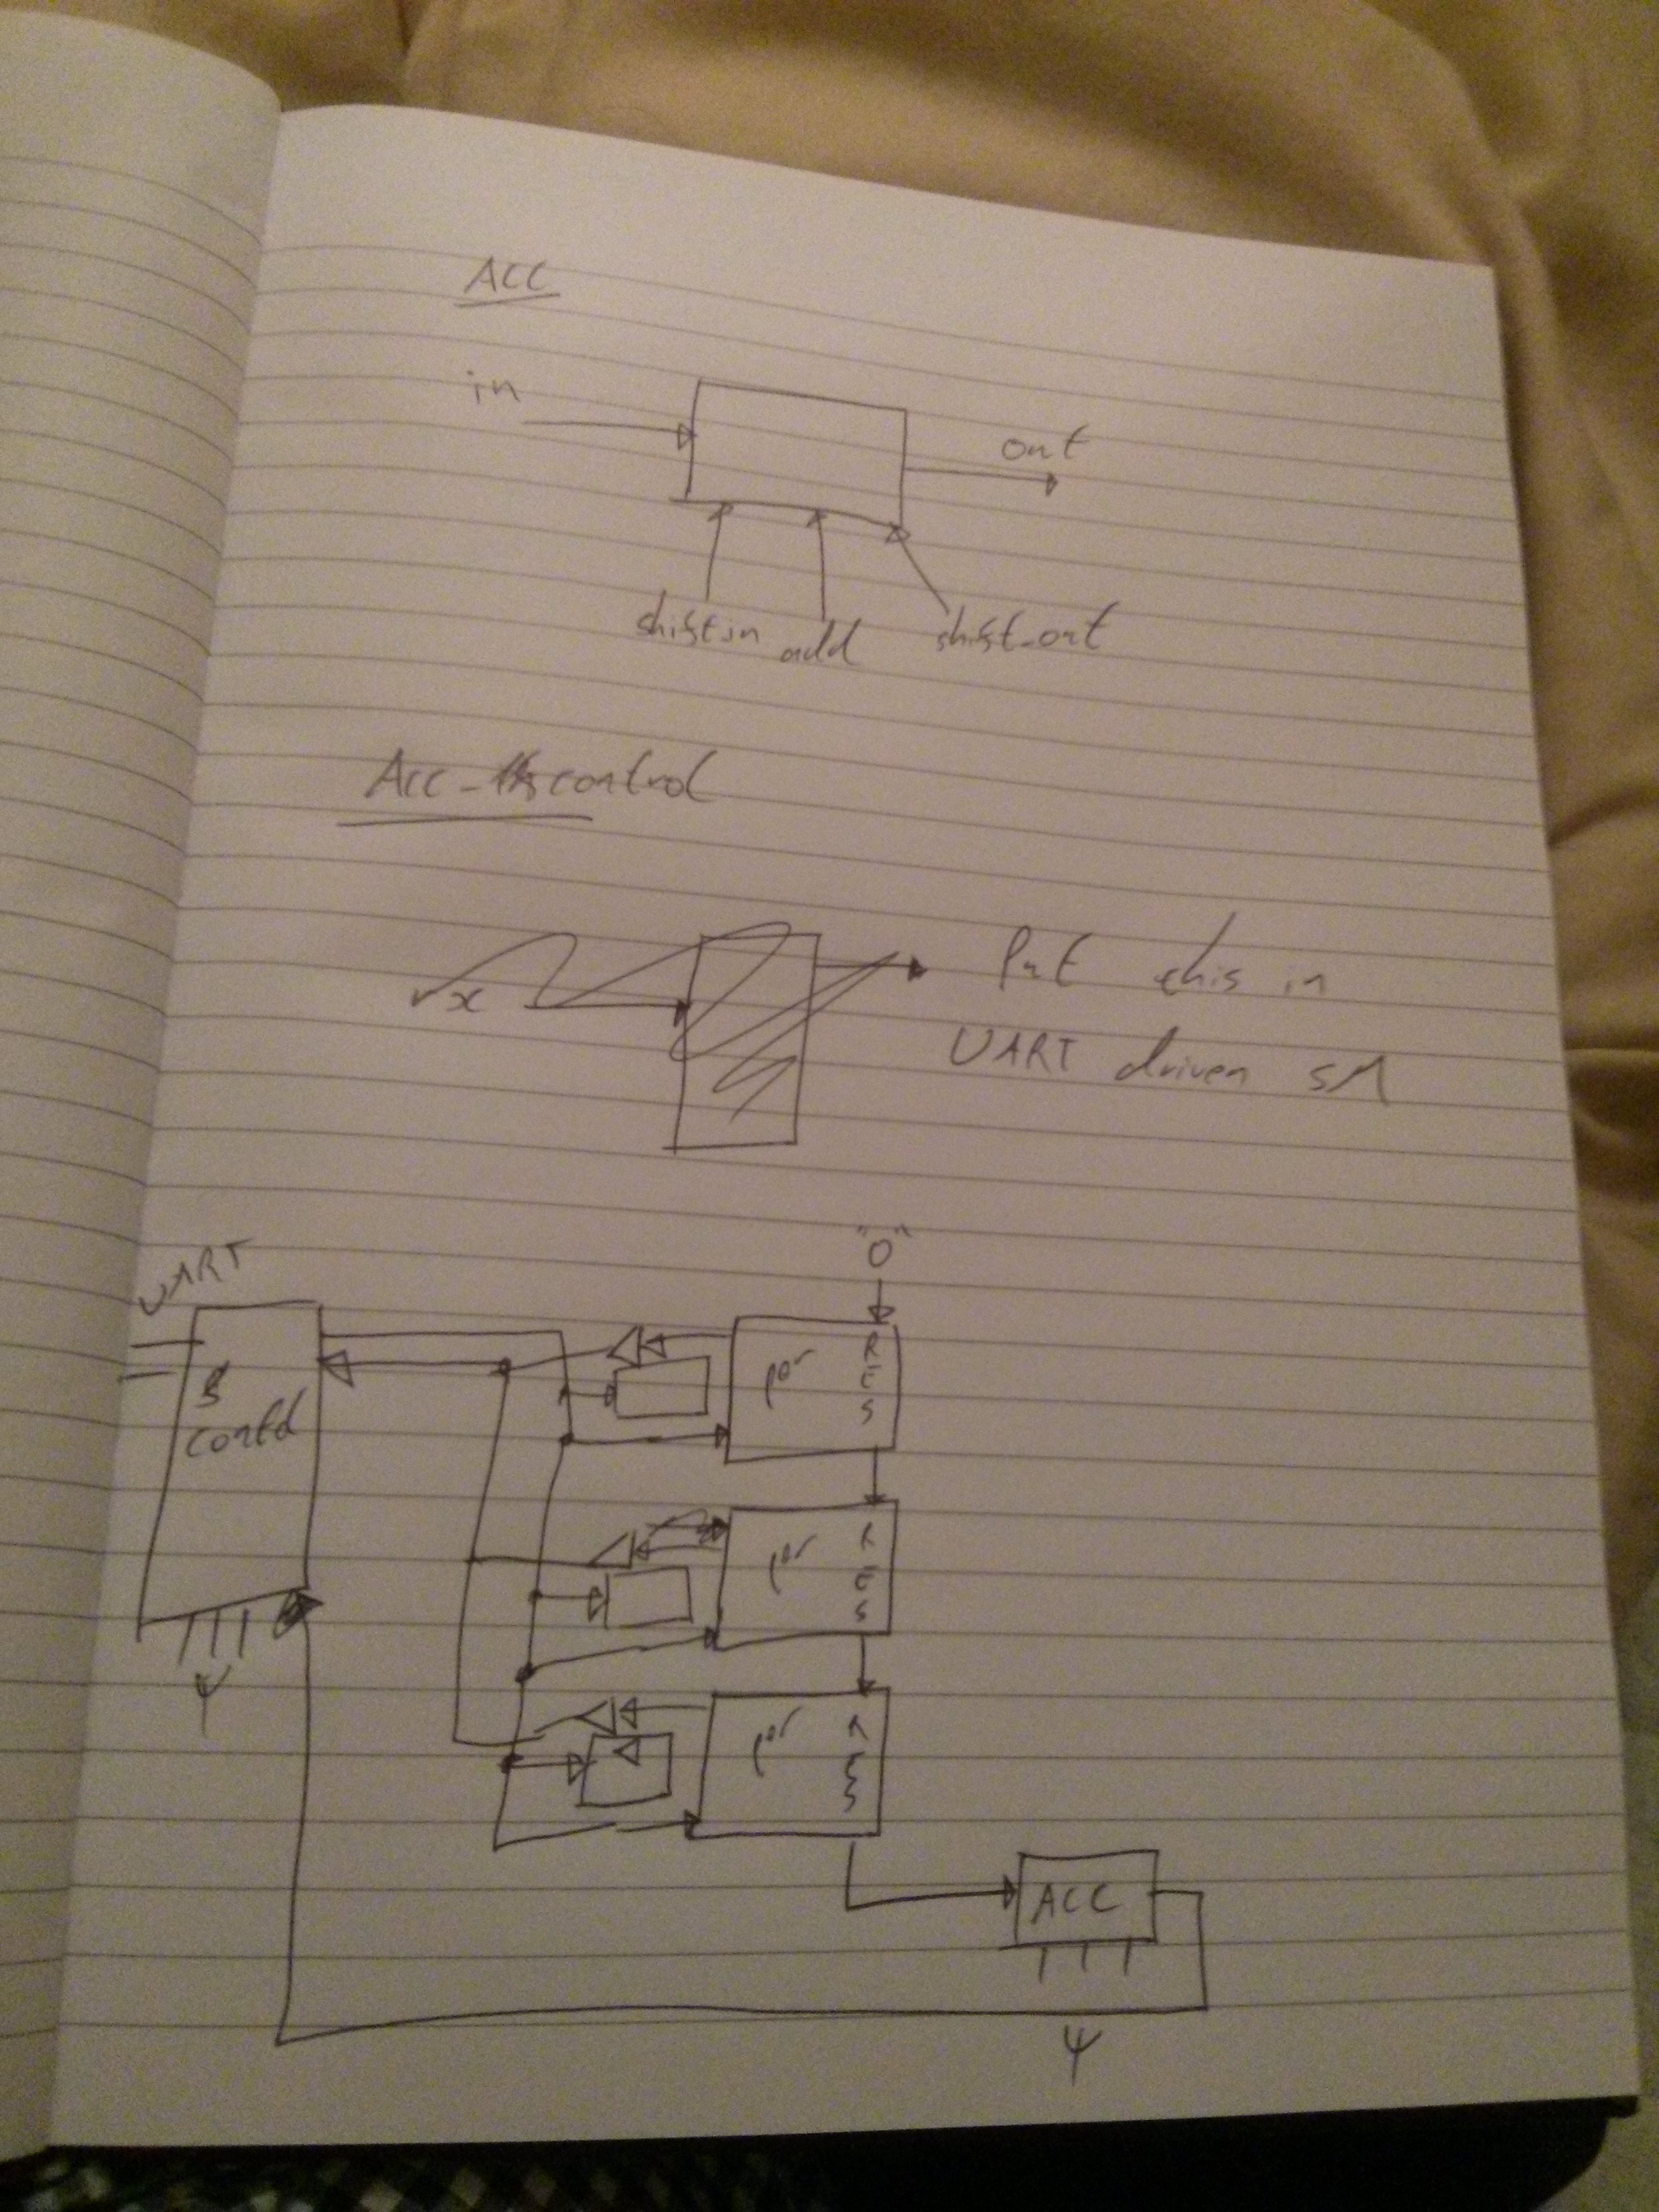 ACC
in
out
shift in add shift_out
Acc - control
rx
Put this in
UART driven SM
"0"
UART
RES
contd
RES
Ψ
RES
ACC
Ψ